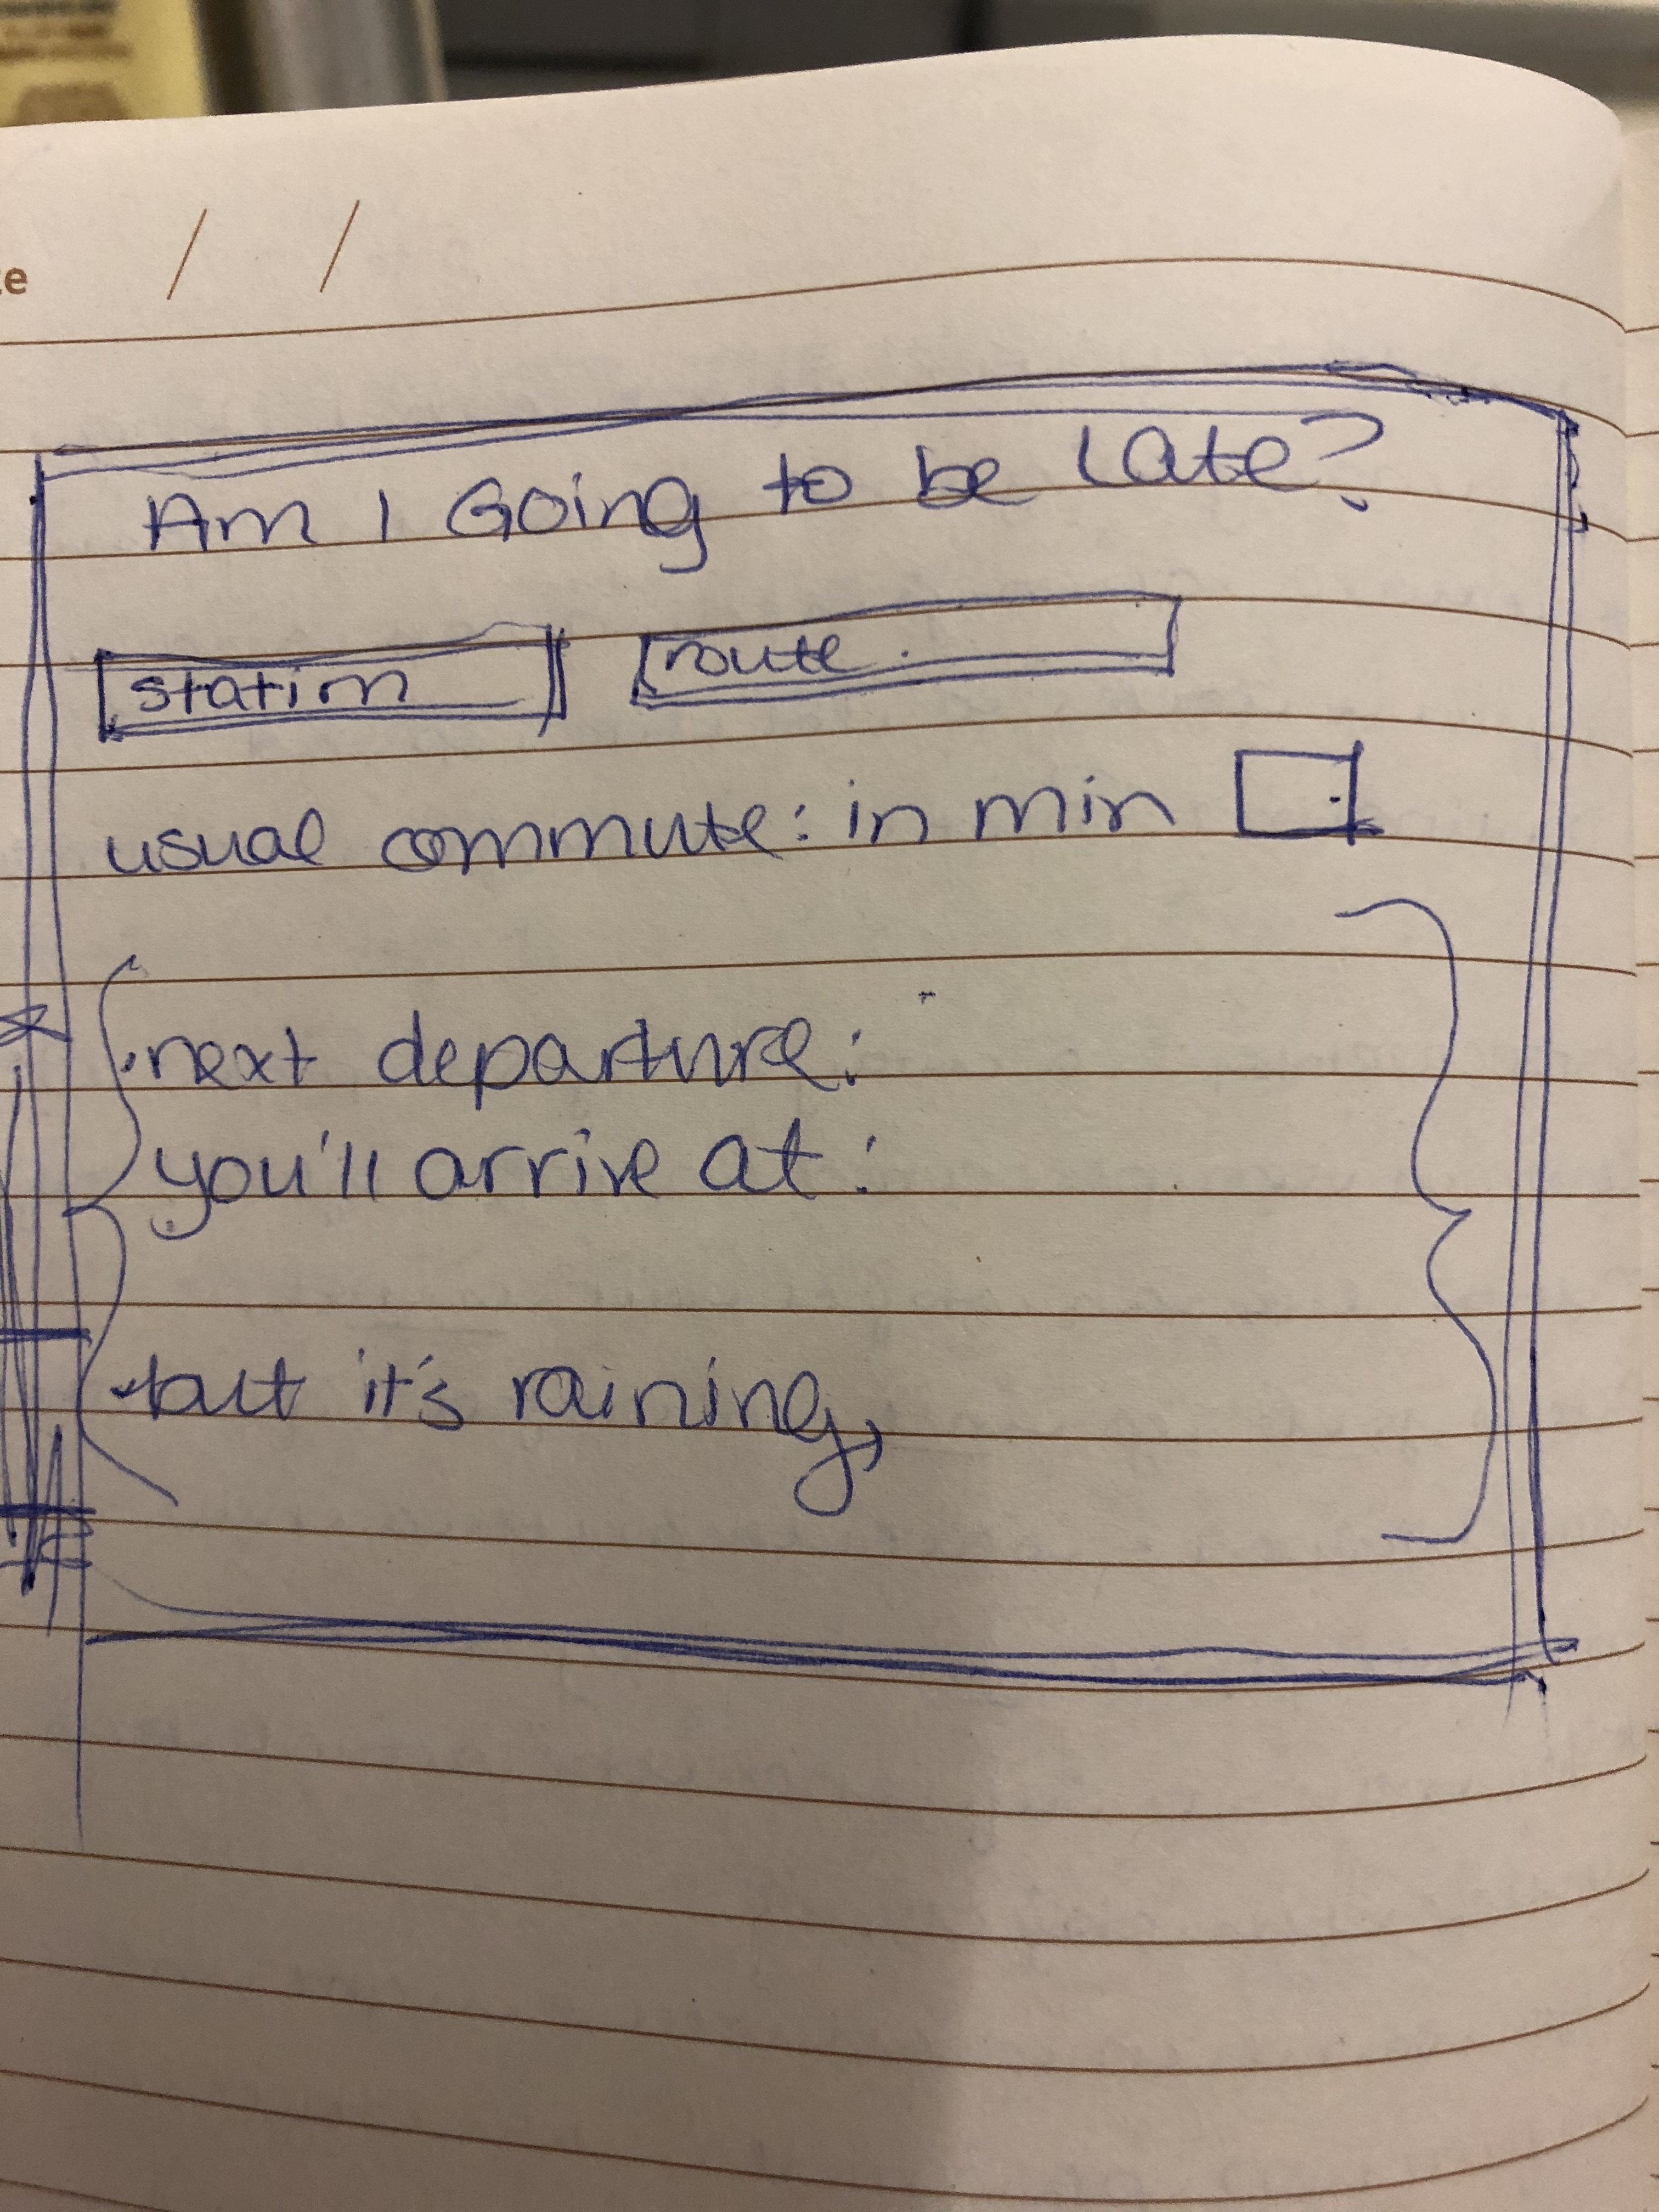 te / /
Am I Going to be Late?
station route.
usual commute: in min
next departure:
you'll arrive at:
but it's raining,